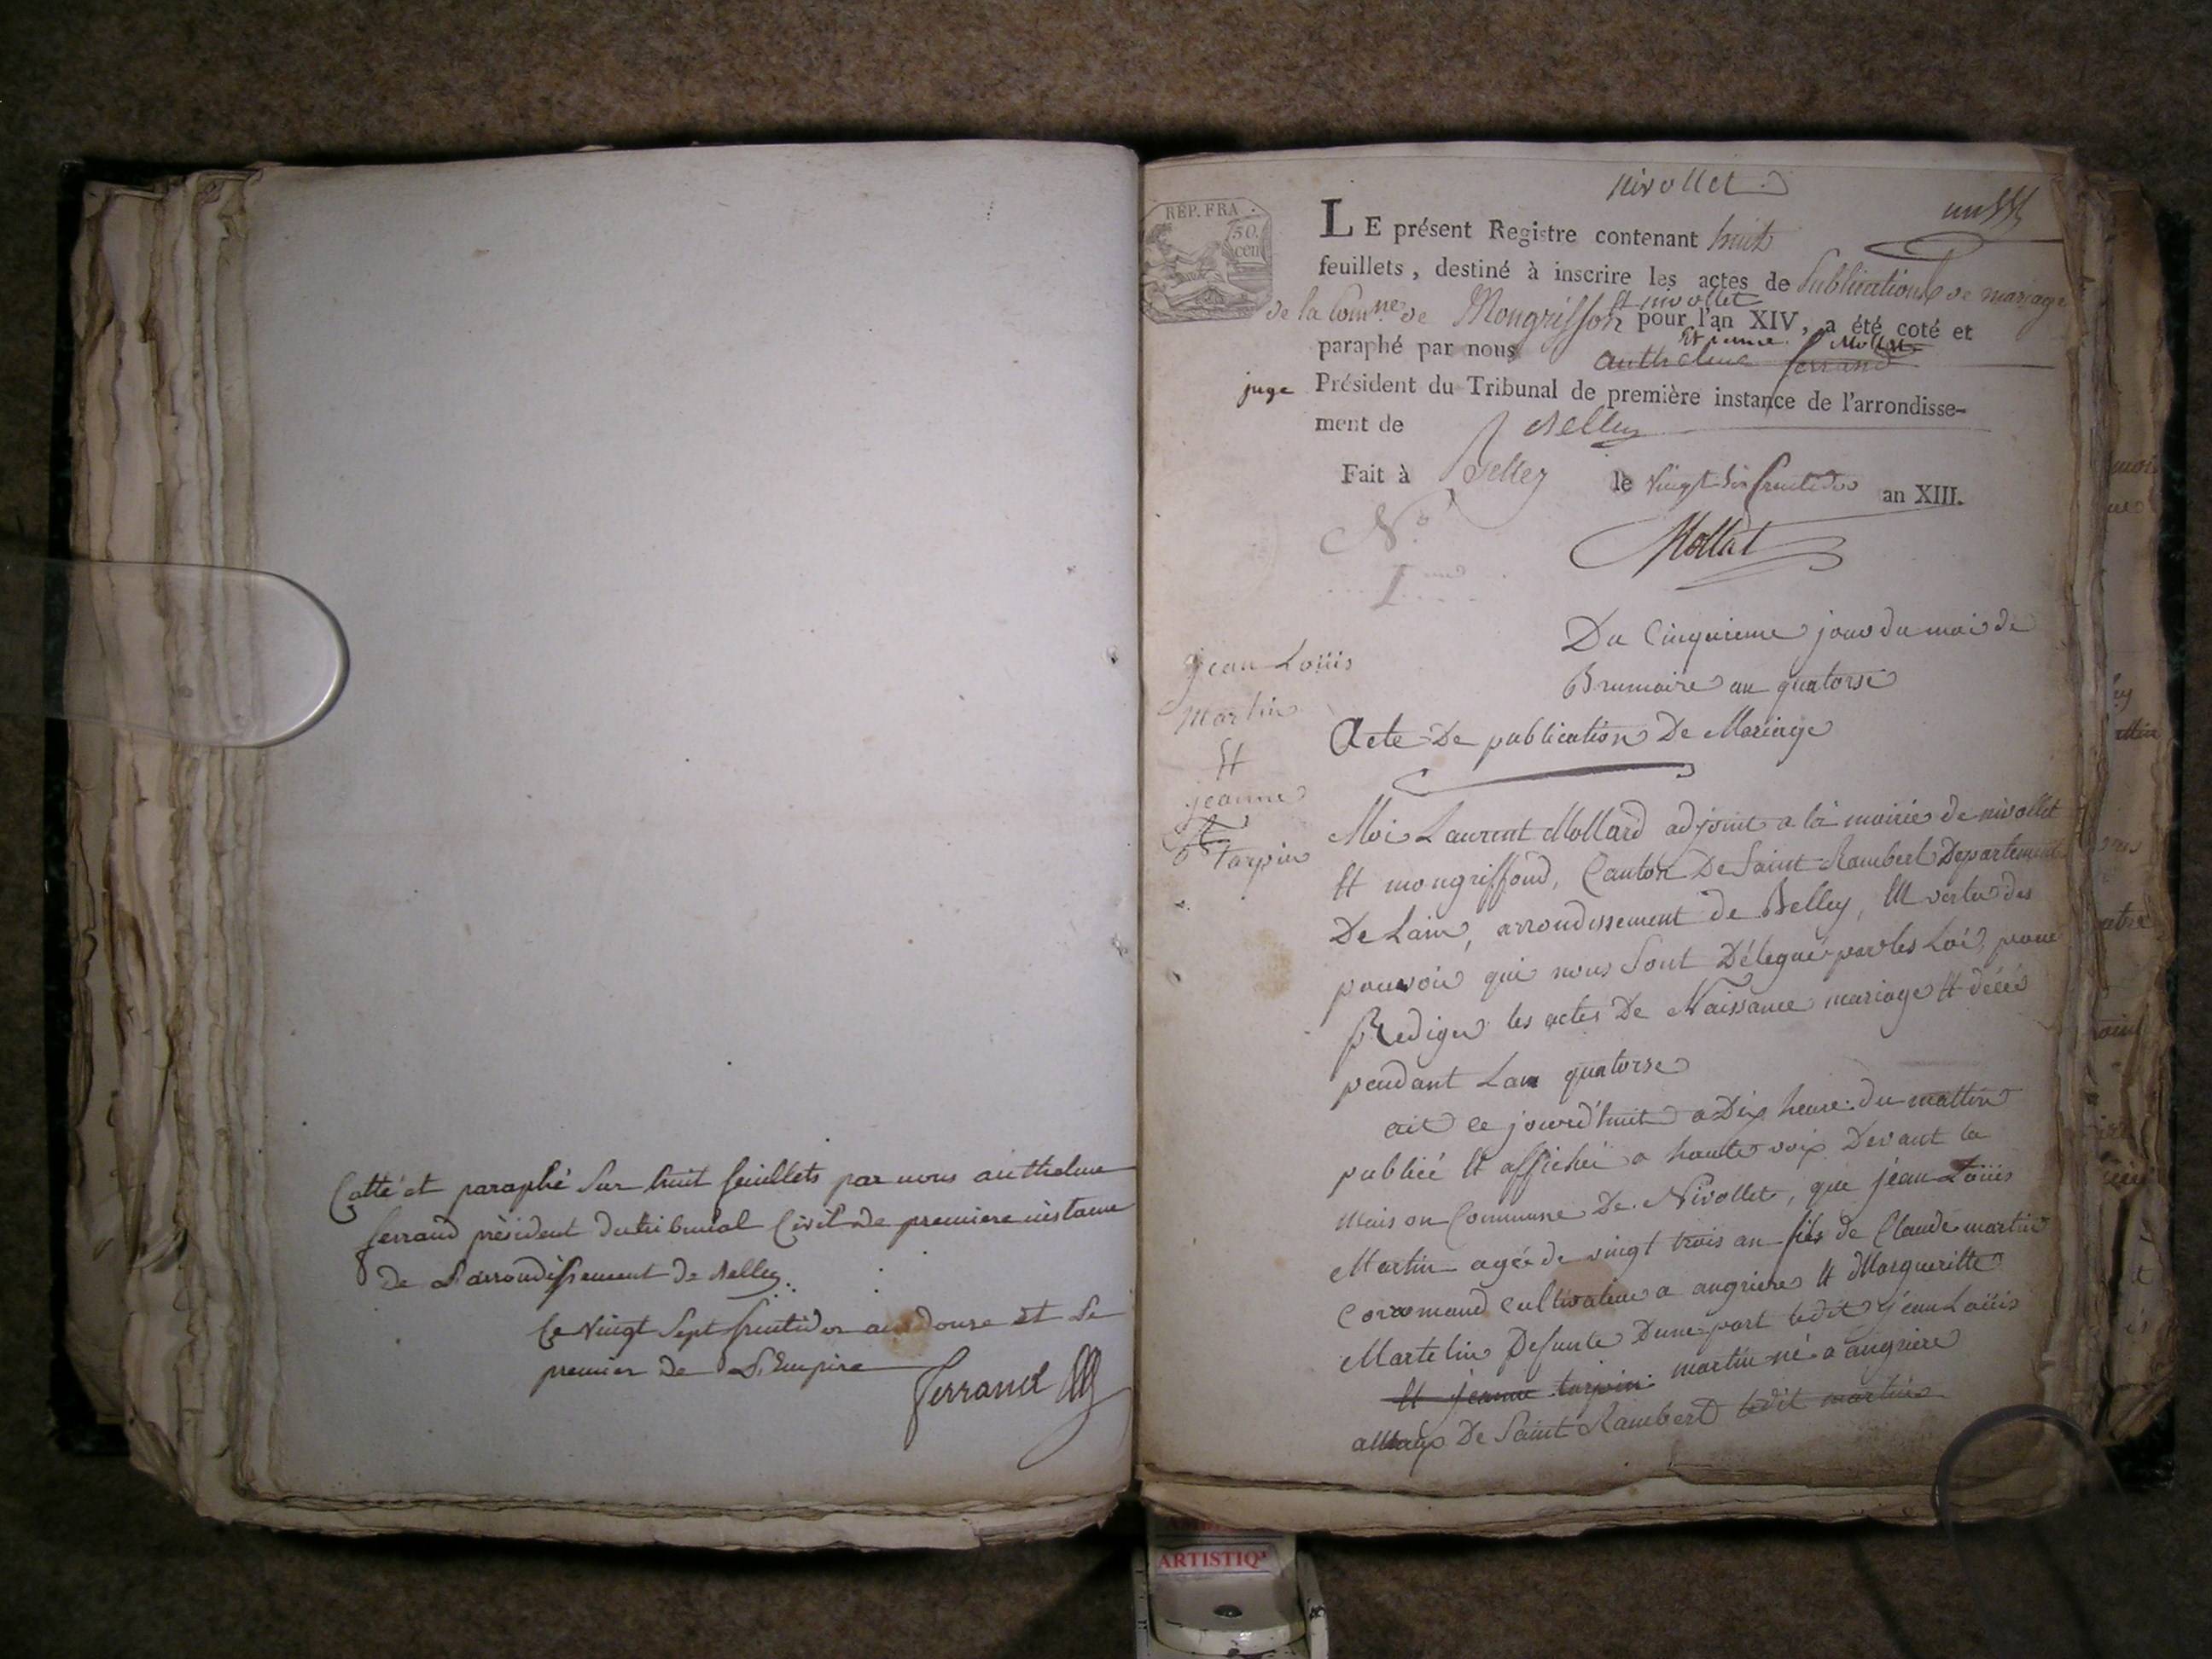 Cotté et paraphé sur huit feuillets par nous anthelme
ferrand président du tribunal Civil de premiere instance
de L'arrondissement de Belley.
Le vingt Sept fructidor an douze et Le
premier de L'Empire
ferrand
nivollet
REP. FRA.
50.
cen
LE présent Registre contenant huit
feuillets, destiné à inscrire les actes de Publications de mariage
et nivollet
de la Comne. de Mongriffon pour l'an XIV, a été coté et
Et Mollet
paraphé par nous anthelme ferrand
juge Président du Tribunal de première instance de l'arrondisse-
ment de Belley
Fait à Belley le vingt Six fructidor an XIII.
N.o
1
Du Cinquieme jour du moi de
Brumaire an quatorse
Acte De publication De Mariage
jean Loüis
Martin
Et
jeanne
tarpin
Moi Laurent Mollard adjoint a la mairie de nivollet
Et mongriffond, Canton De Saint Rambert Departement
De Lain, arrondissement de Belley, Et vertu des
pouvoir qui nous Sont Délegué par les Loi, pour
Rediger les actes De Naissance mariage Et décés
pendant Lan quatorse
ait ce jourd'huit a Dix heure du mattin
publieé Et affichéi a haute voix Devant la
maison Commune De Nivollet, que jean Loüis
Martin ageé de vingt trois an fils de Claude martin
cultivateur a angriere Et Margueritte
Martelin Defunte Dune part ledit jean Loüis
Et jeanne tarpin martin né a angriere
De Saint Rambert ledit martin